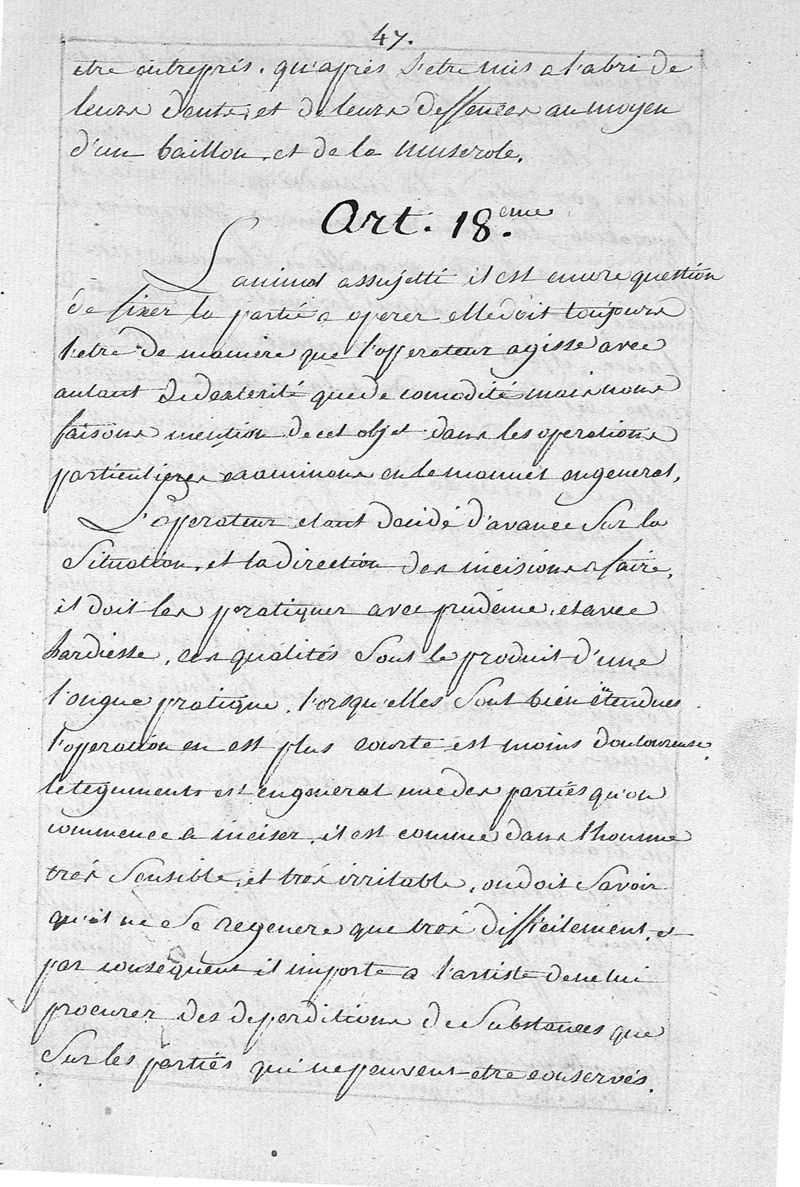 47.
etre entrepris. qu'après s'etre mis a l'abri de
leurs dents, et de leurs deffences au moyen
d'un baillon, et de la muserole.
Art. 18.eme
L'animal assujetti il est encore question
de fixer la partie a operer, elle doit toujours
l'etre de maniere que l'operateur agisse avec
autant de dexterité que de comodité mais nous
faisons mention de cet objet dans les operations
particulieres examinons en le manuel en general.
L'operateur etant decidé d'avance sur la
Situation, et la direction des incisions a faire,
il doit les pratiquer avec prudence, et avec
hardiesse, ces qualités sont le produit d'une
longue pratique, lorsqu'elles sont bien étendues
l'operation en est plus courte est moins douloureuse.
le teguments est en general une des parties qu'on
commence a inciser, il est comme dans l'homme
très sensible, et très irritable, on doit savoir
qu'il ne se regenere que très difficilement, et
par consequent il importe a l'artiste de ne lui
procurer des deperditions de substances que
sur les parties qui ne peuvent etre conservés.